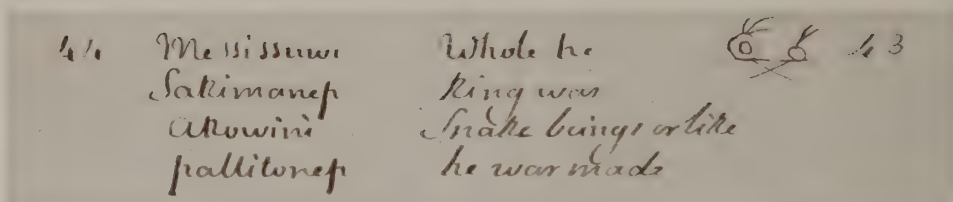 44 Messissuwi Whole he 43
Sakimanep King was
Akowini Snake beings or like
pallitonep he war made